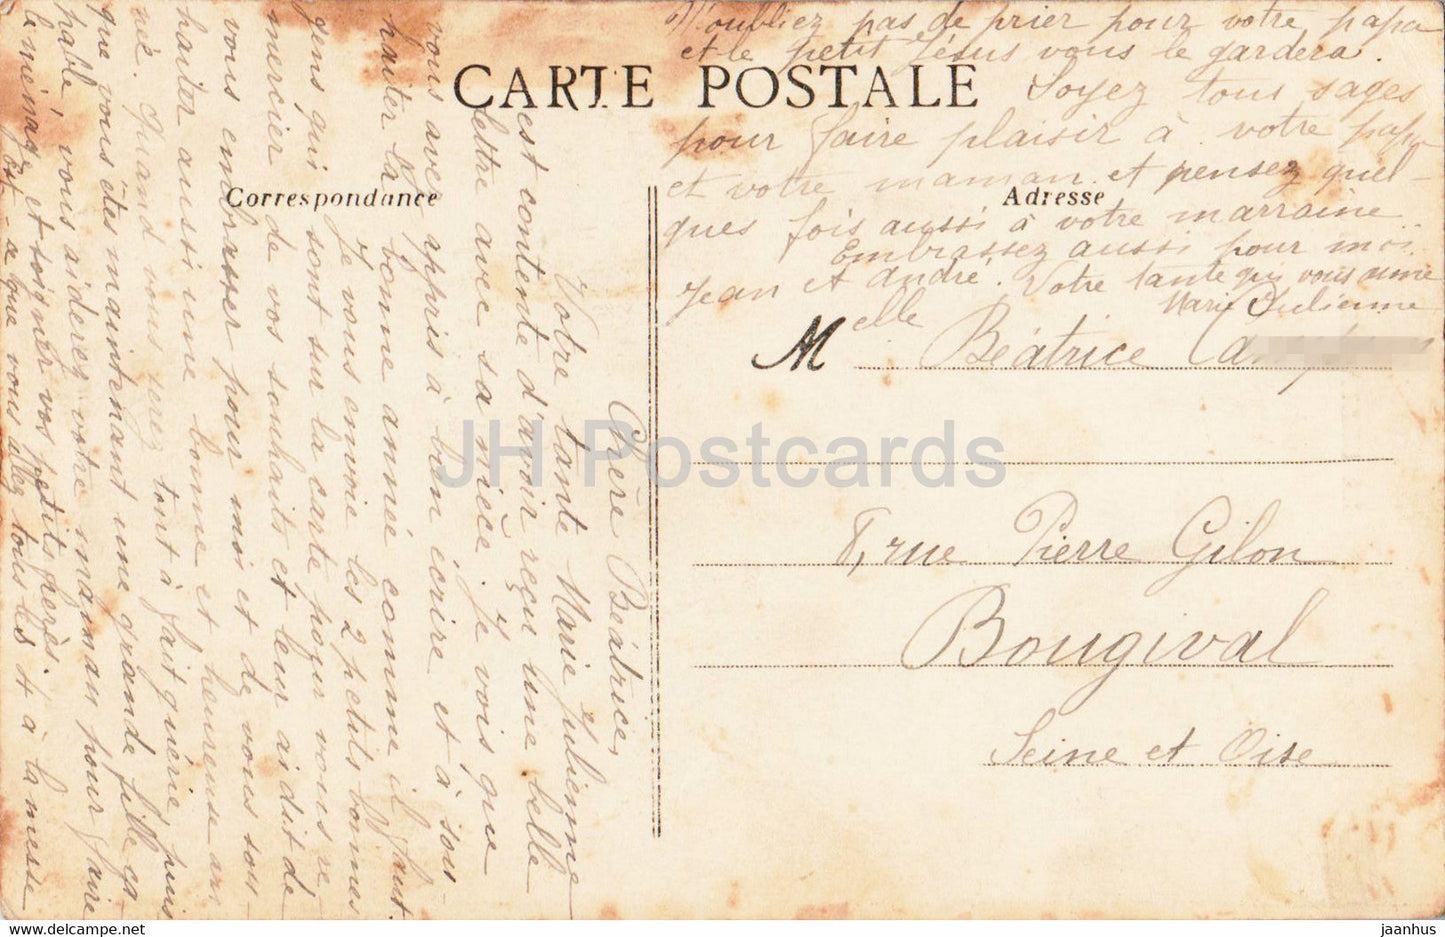 N'oubliez pas de prier pour votre papa
et le petit Jésus vous le gardera.
CARTE POSTALE
Soyez tous sages
pour faire plaisir à votre papa
et votre maman et pensez quel-
ques fois aussi à votre marraine
Embrassez aussi pour moi
Jean et André. Votre tante qui vous aime
Marie Julienne
Correspondance
Adresse
Melle Béatrice
8, rue Pierre Gilon
Bougival
Seine et Oise
Chère Béatrice,
Votre tante Marie Julienne
est contente d'avoir reçu une belle
lettre avec sa nièce. Je vois que
vous avez appris à bien écrire et à sou-
haiter la bonne année comme il faut.
Je vous envoie les 2 petits bonnes
gens qui sont sur la carte pour vous re
mercier de vos souhaits et leur ai dit de
vous embrasser pour moi et de vous sou-
haiter aussi une bonne et heureuse an
née. Quand vous serez tout à fait guérie, puis
que vous êtes maintenant une grande fille ça
pable, vous aiderez votre maman pour faire
le ménage et soigner vos petits frères.
Est-ce que vous allez tous les 4 à la messe
JH Postcards
jaanhus